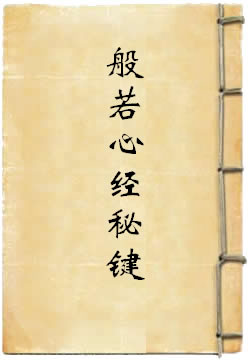 般若心经秘键